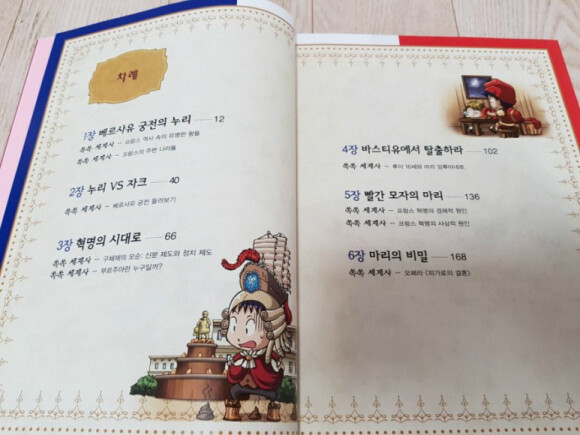 차례
1장 베르사유 궁전의 누리 12
쏙쏙 세계사 - 프랑스 역사 속의 유명한 왕들
쏙쏙 세계사 - 프랑스의 주변 나라들
2장 누리 VS 자크 40
쏙쏙 세계사 - 베르사유 궁전 둘러보기
3장 혁명의 시대로 66
쏙쏙 세계사 - 구체제의 모순: 신분 제도와 정치 제도
쏙쏙 세계사 - 부르주아란 누구일까?
4장 바스티유에서 탈출하라 102
쏙쏙 세계사 - 루이 16세와 마리 앙투아네트
5장 빨간 모자의 마리 136
쏙쏙 세계사 - 프랑스 혁명의 경제적 원인
쏙쏙 세계사 - 프랑스 혁명의 사상적 원인
6장 마리의 비밀 168
쏙쏙 세계사 - 오페라 〈피가로의 결혼〉